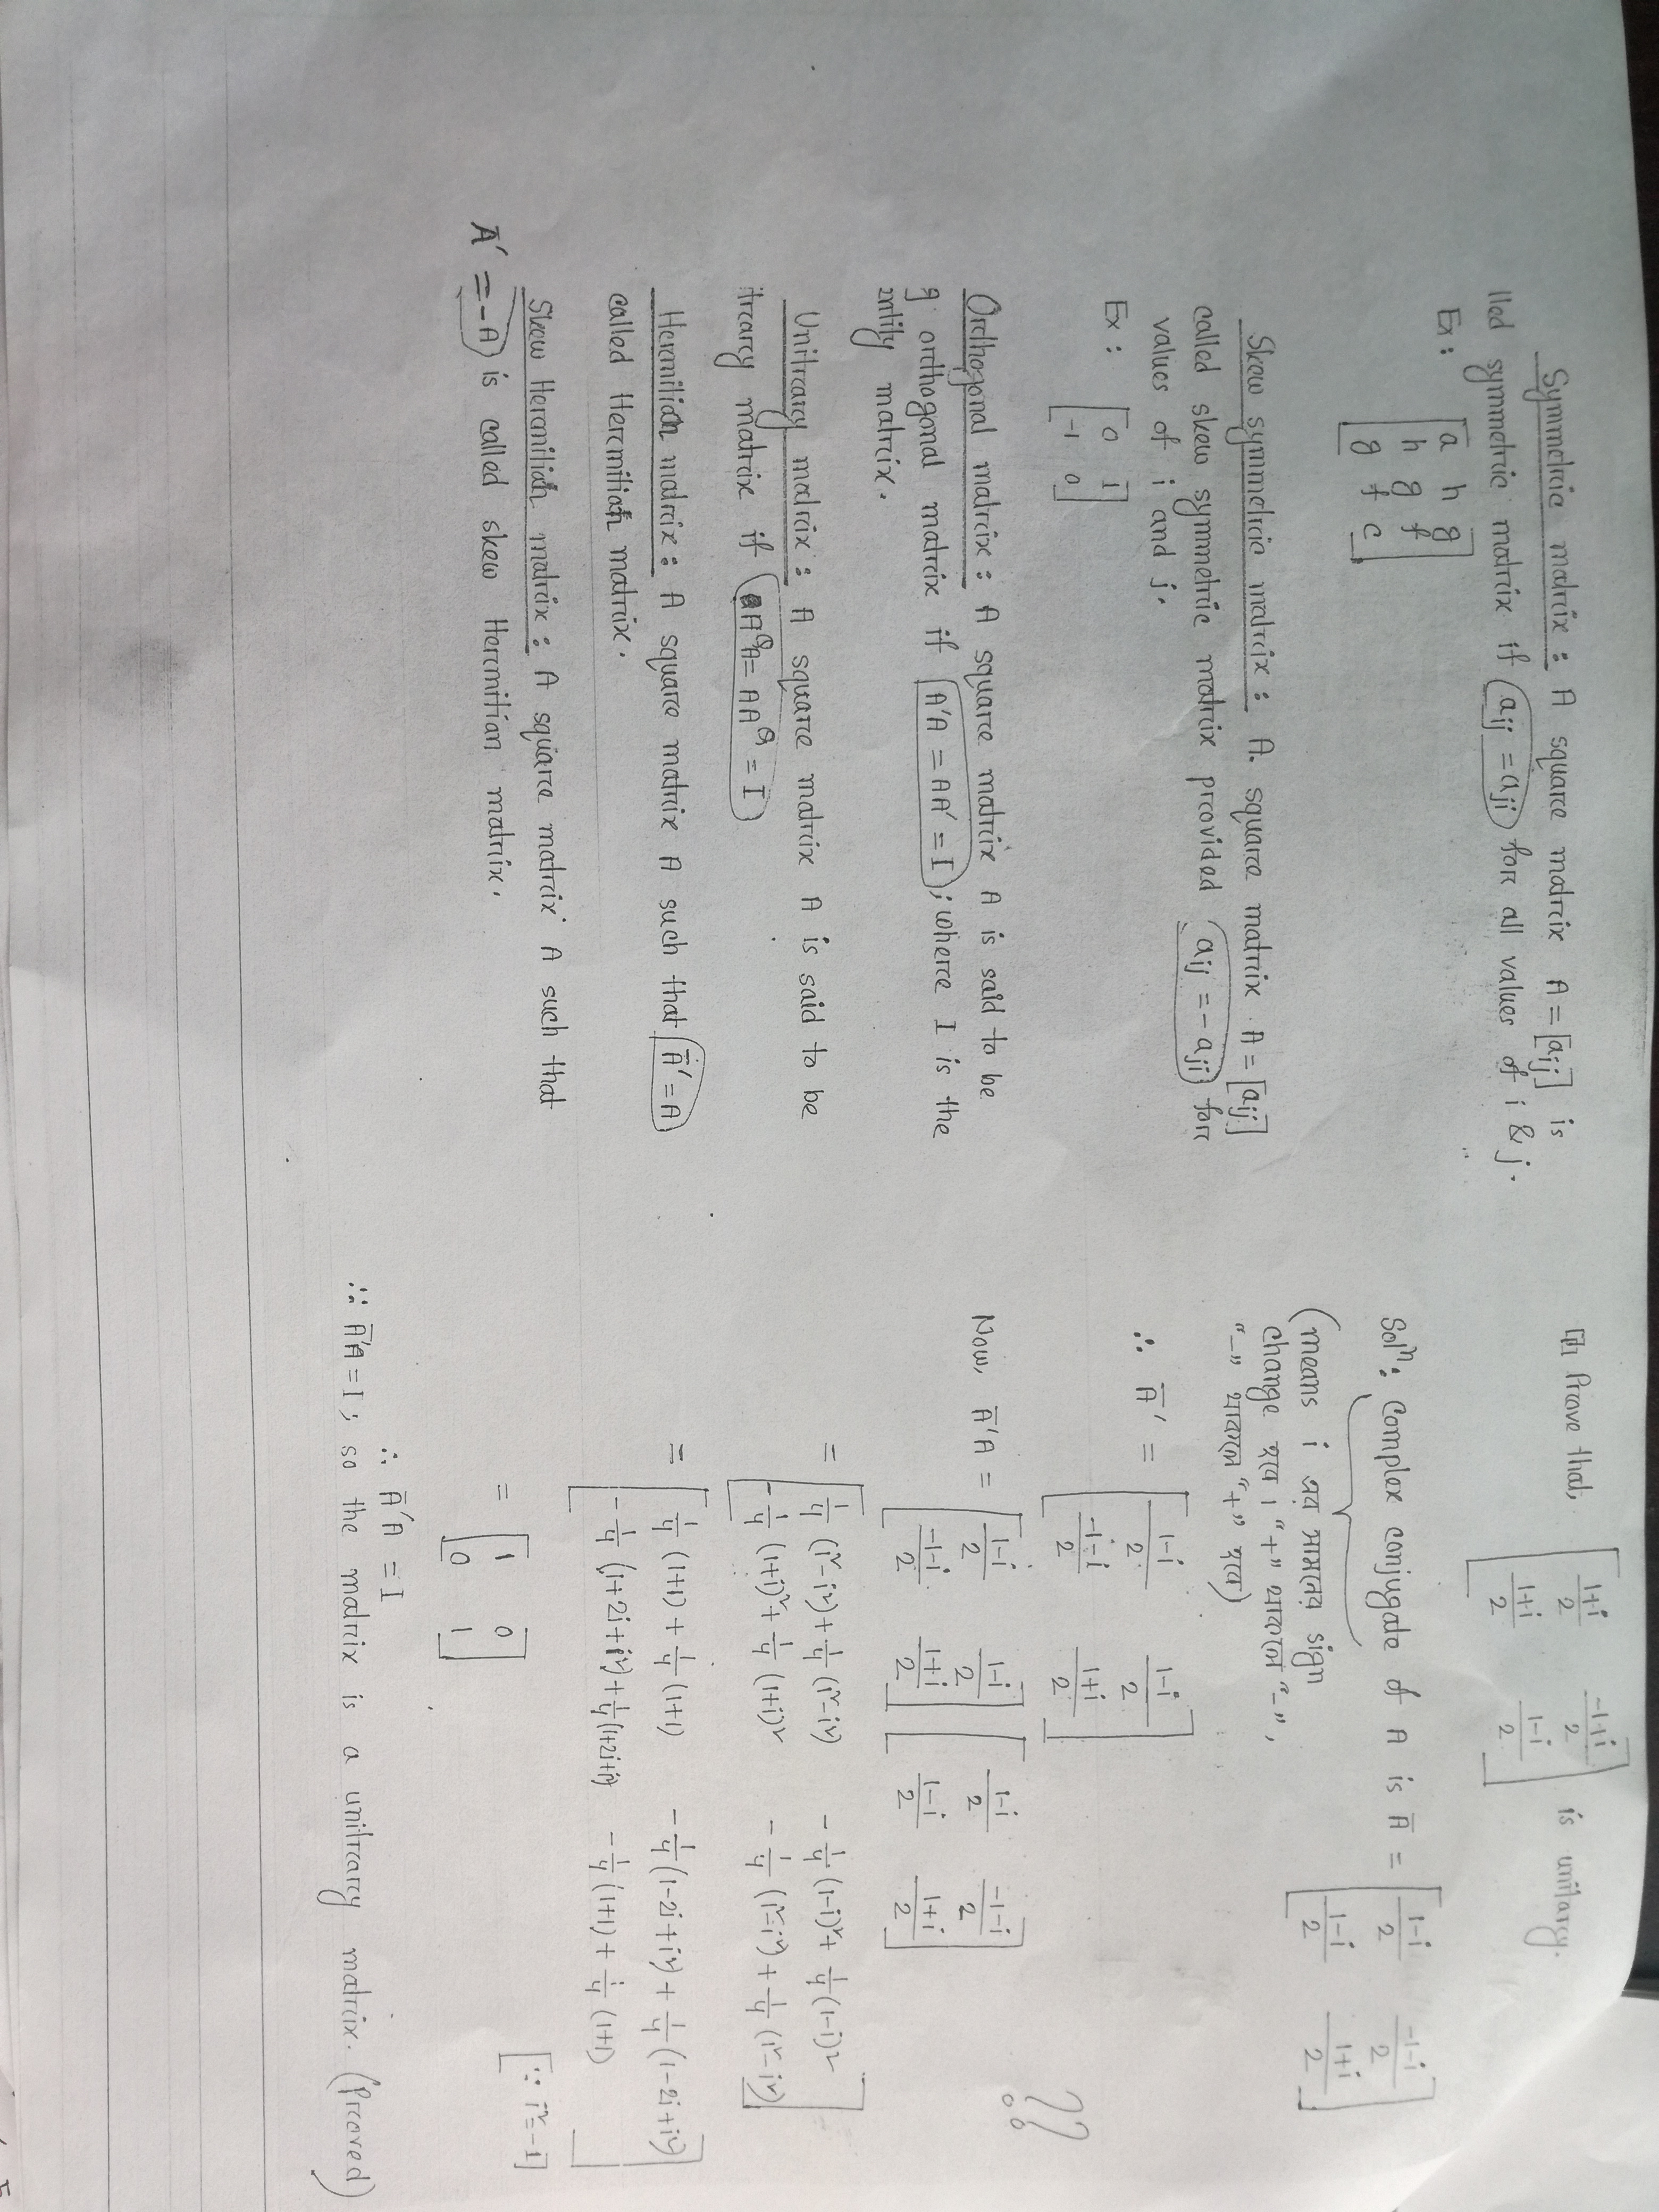 Symmetric matrix : A square matrix A = [aij] is
lled symmetric matrix if aij = aji for all values of i & j.
Ex :
[a h g
h g f
g f c]
Skew symmetric matrix : A square matrix A = [aij]
called skew symmetric matrix provided aij = - aji for
values of i and j.
Ex :
[0 1
-1 0]
Orthogonal matrix : A square matrix A is said to be
g orthogonal matrix if A'A = AA' = I ; where I is the
entity matrix.
Unitrary matrix : A square matrix A is said to be
itrary matrix if AᶿA = AAᶿ = I
Hermitian matrix : A square matrix A such that Ā' = A
called Hermitian matrix.
Skew Hermitian matrix : A square matrix A such that
Ā' = -A is called skew Hermitian matrix.
Prove that, [(1+i)/2 (-1+i)/2
(1+i)/2 (1-i)/2] is unitary.
Solⁿ : Complex conjugate of A is Ā = [(1-i)/2 (-1-i)/2
(1-i)/2 (1+i)/2]
(means i এর সামনের sign
change হবে । "+" থাকলে "-",
"-" থাকলে "+" হবে)
∴ Ā' = [(1-i)/2 (1-i)/2
(-1-i)/2 (1+i)/2]
??
Now, Ā'A = [(1-i)/2 (1-i)/2
(-1-i)/2 (1+i)/2] [(1-i)/2 (-1-i)/2
(1-i)/2 (1+i)/2]
= [1/4 (i²-i²) + 1/4 (i²-i²) - 1/4 (1-i)² + 1/4 (1-i)²
- 1/4 (1+i)² + 1/4 (1+i)² - 1/4 (i²-i²) + 1/4 (i²-i²)]
= [1/4 (1+1) + 1/4 (1+1) - 1/4 (1-2i+i²) + 1/4 (1-2i+i²)
- 1/4 (1+2i+i²) + 1/4 (1+2i+i²) - 1/4 (1+1) + i/4 (1+1)]
[∵ i²=-1]
= [1 0
0 1]
∴ Ā'A = I
∵ Ā'A = I ; so the matrix is a unitrary matrix. (Proved)